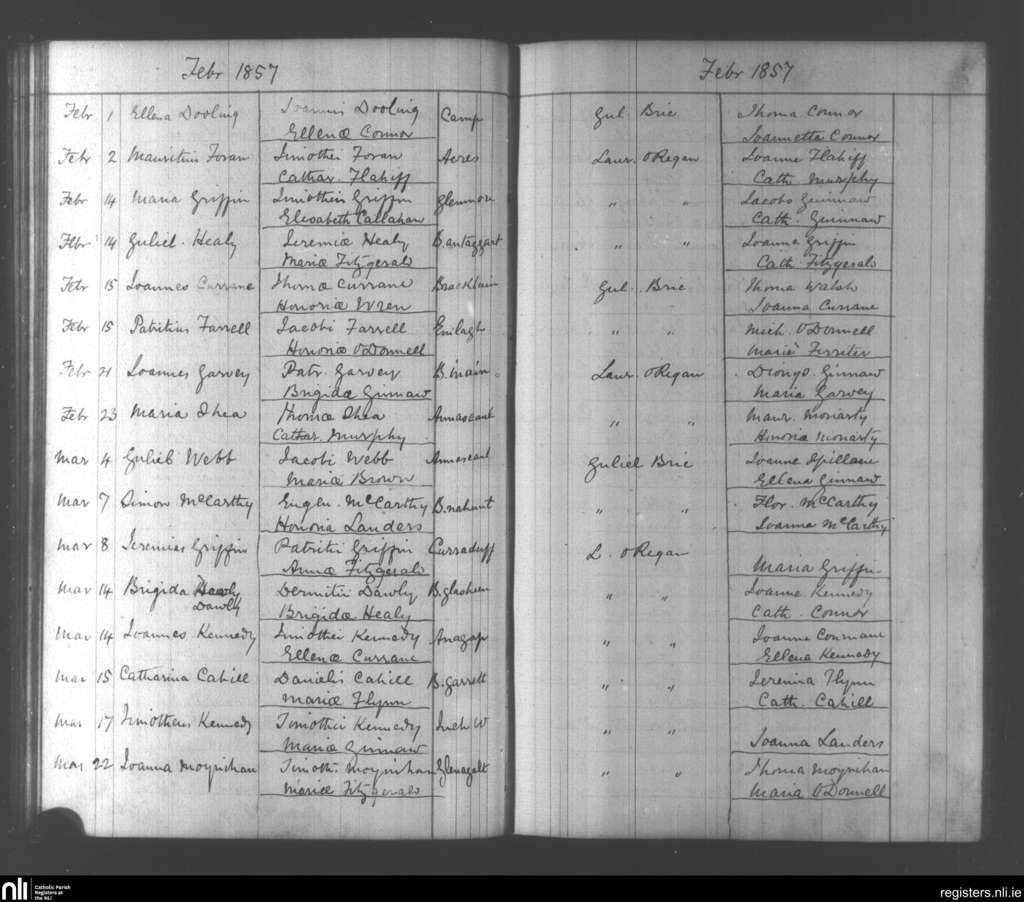 Febr 1857
Febr 1 Ellena Dooling Joannis Dooling Camp
Ellenæ Connor
Febr 2 Mauritius Foran Timothei Foran Acres
Cathar. Flahiff
Febr 14 Maria Griffin Timothein Griffin Glenmore
Elisabeth Callahan
Febr 14 Guliel. Healy Jeremiæ Healy B.antaggart
Mariæ Fitzgerald
Febr 15 Joannes Currane Thomæ Currane Brackluin
Honoriæ Wren
Febr 15 Patritius Farrell Jacobi Farrell Emlagh
Honoriæ O'Donnell
Febr 21 Joannes Garvey Patr. Garvey B.main
Brigidæ Ginnaw
Febr 23 Maria Shea Thomæ Shea Annascaul
Cathar. Murphy
Mar 4 Guliel Webb Jacobi Webb Annascaul
Mariæ Brown
Mar 7 Simon McCarthy Eugen. McCarthy B.nahunt
Honoria Landers
Mar 8 Jeremias Griffin Patritii Griffin Curraduff
Annæ Fitzgerald
Mar 14 Brigida Dermitii Dawly B.glasheen
Dawly Brigidæ Healy
Mar 14 Joannes Kennedy Timothei Kennedy Anagap
Ellenæ Currane
Mar 15 Catharina Cahill Danielis Cahill B.garrett
Mariæ Flynn
Mar 17 Timotheus Kennedy Timothei Kennedy Inch W
Mariæ Ginnaw
Mar 22 Joanna Moynihan Timothi Moynihan Glenagalt
Mariæ Fitzgerald
Febr 1857
Gul. Brie Thoma Connor
Joannetta Connor
Laur. O'Regan Joanne Flahiff
Cath. Murphy
" " Jacobo Guinnaw
Cath. Guinnaw
" " Joanna Griffin
Cath. Fitzgerald
Gul. Brie Thoma Walsh
Joanna Currane
" " Mich. O'Donnell
Maria Ferriter
Laur. O'Regan Dionys. Ginnaw
Maria Garvey
" " Maur. Moriarty
Honoria Moriarty
Guliel Brie Joanne Spillane
Ellena Ginnaw
" " Flor. McCarthy
Joanna McCarthy
L. O'Regan
Maria Griffin
" " Joanne Kennedy
Cath. Connor
" " Joanne Connane
Ellena Kennedy
" " Jeremia Flynn
Cath. Cahill
" "
Joanna Landers
" " Thoma Moynihan
Maria O'Donnell
nli Catholic Parish
Registers at
the NLI
registers.nli.ie